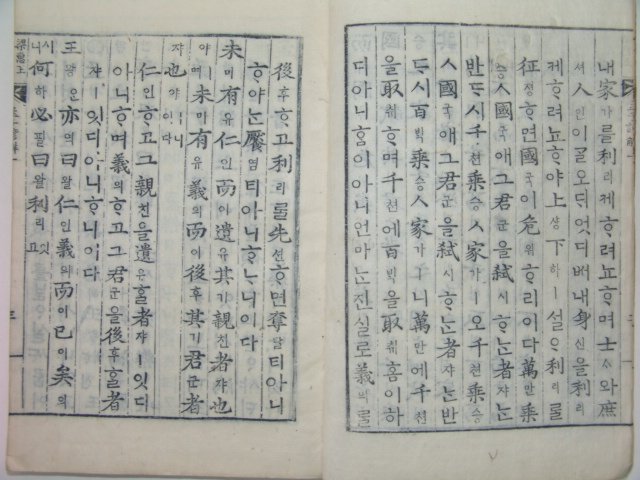 내家가를利리케ᄒᆞ려뇨ᄒᆞ며士ᄉᆞ와庶
셔人인이ᄀᆞᆯ오ᄃᆡ엇디ᄡᅥ내身신을利리
케ᄒᆞ려뇨ᄒᆞ야上샹下하ㅣ설으利리ᄅᆞᆯ
征졍ᄒᆞ면國국이危위ᄒᆞ리이다萬만乘
승ㅅ國국애그君군을弑시ᄒᆞᄂᆞᆫ者쟈ᄂᆞᆫ
반ᄃᆞ시千쳔乘승ㅅ家가ㅣ오千쳔乘승
ㅅ國국애그君군을弑시ᄒᆞᄂᆞᆫ者쟈ᄂᆞᆫ반
ᄃᆞ시百ᄇᆡᆨ乘승ㅅ家가ㅣ니萬만에千쳔
을取ᄎᆔᄒᆞ며千쳔에百ᄇᆡᆨ을取ᄎᆔ홈이하
디아니홈이아니언마ᄂᆞᆫ진실로義의ᄅᆞᆯ
後후ᄒᆞ고利리ᄅᆞᆯ先션ᄒᆞ면奪탈티아니
ᄒᆞ야ᄂᆞᆫ饜염티아니ᄒᆞᄂᆞ니이다
未미有유仁인而이遺유其기親친者쟈也
야ㅣ며未미有유義의而이後후其기君군者
쟈也야ㅣ니이다
仁인ᄒᆞ고그親친을遺유ᄒᆞᆯ者쟈ㅣ잇디
아니ᄒᆞ며義의ᄒᆞ고그君군을後후ᄒᆞᆯ者
쟈ㅣ잇디아니ᄒᆞ니이다
王왕은亦역曰왈仁인義의而이已이矣의
시니何하必필曰왈利리잇고
梁惠王